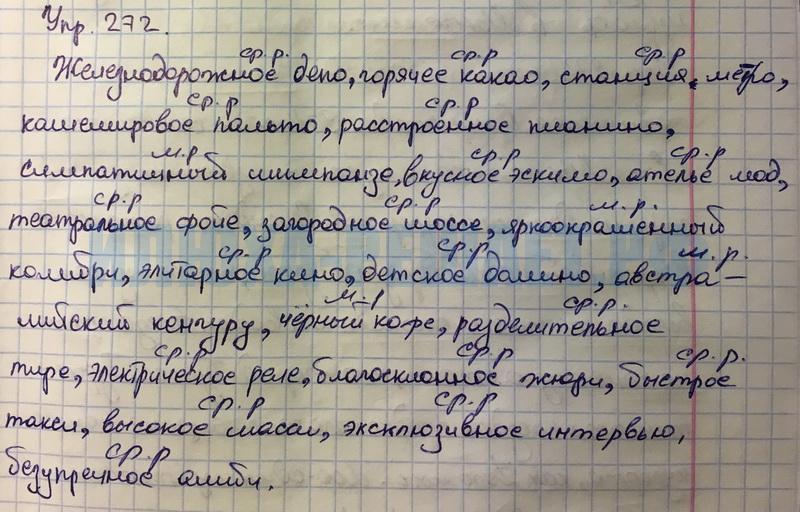 Упр. 272.
ср. р. ср. р ср. р
Железнодорожное депо, горячее какао, станция метро,
ср. р ср. р
кашемировое пальто, расстроенное пианино,
м. р ср. р ср. р
симпатичный шимпанзе, вкусное эскимо, ателье мод,
ср. р ср. р м. р.
театральное фойе, загородное шоссе, яркоокрашенный
ср. р ср. р м. р.
колибри, элитарное кино, детское домино, австра-
м. р ср. р.
лийский кенгуру, чёрный кофе, разделительное
ср. р ср. р ср. р.
тире, электрическое реле, благосклонное жюри, быстрое
ср. р ср. р
такси, высокое масаи, эксклюзивное интервью,
ср. р
безупречное алиби.